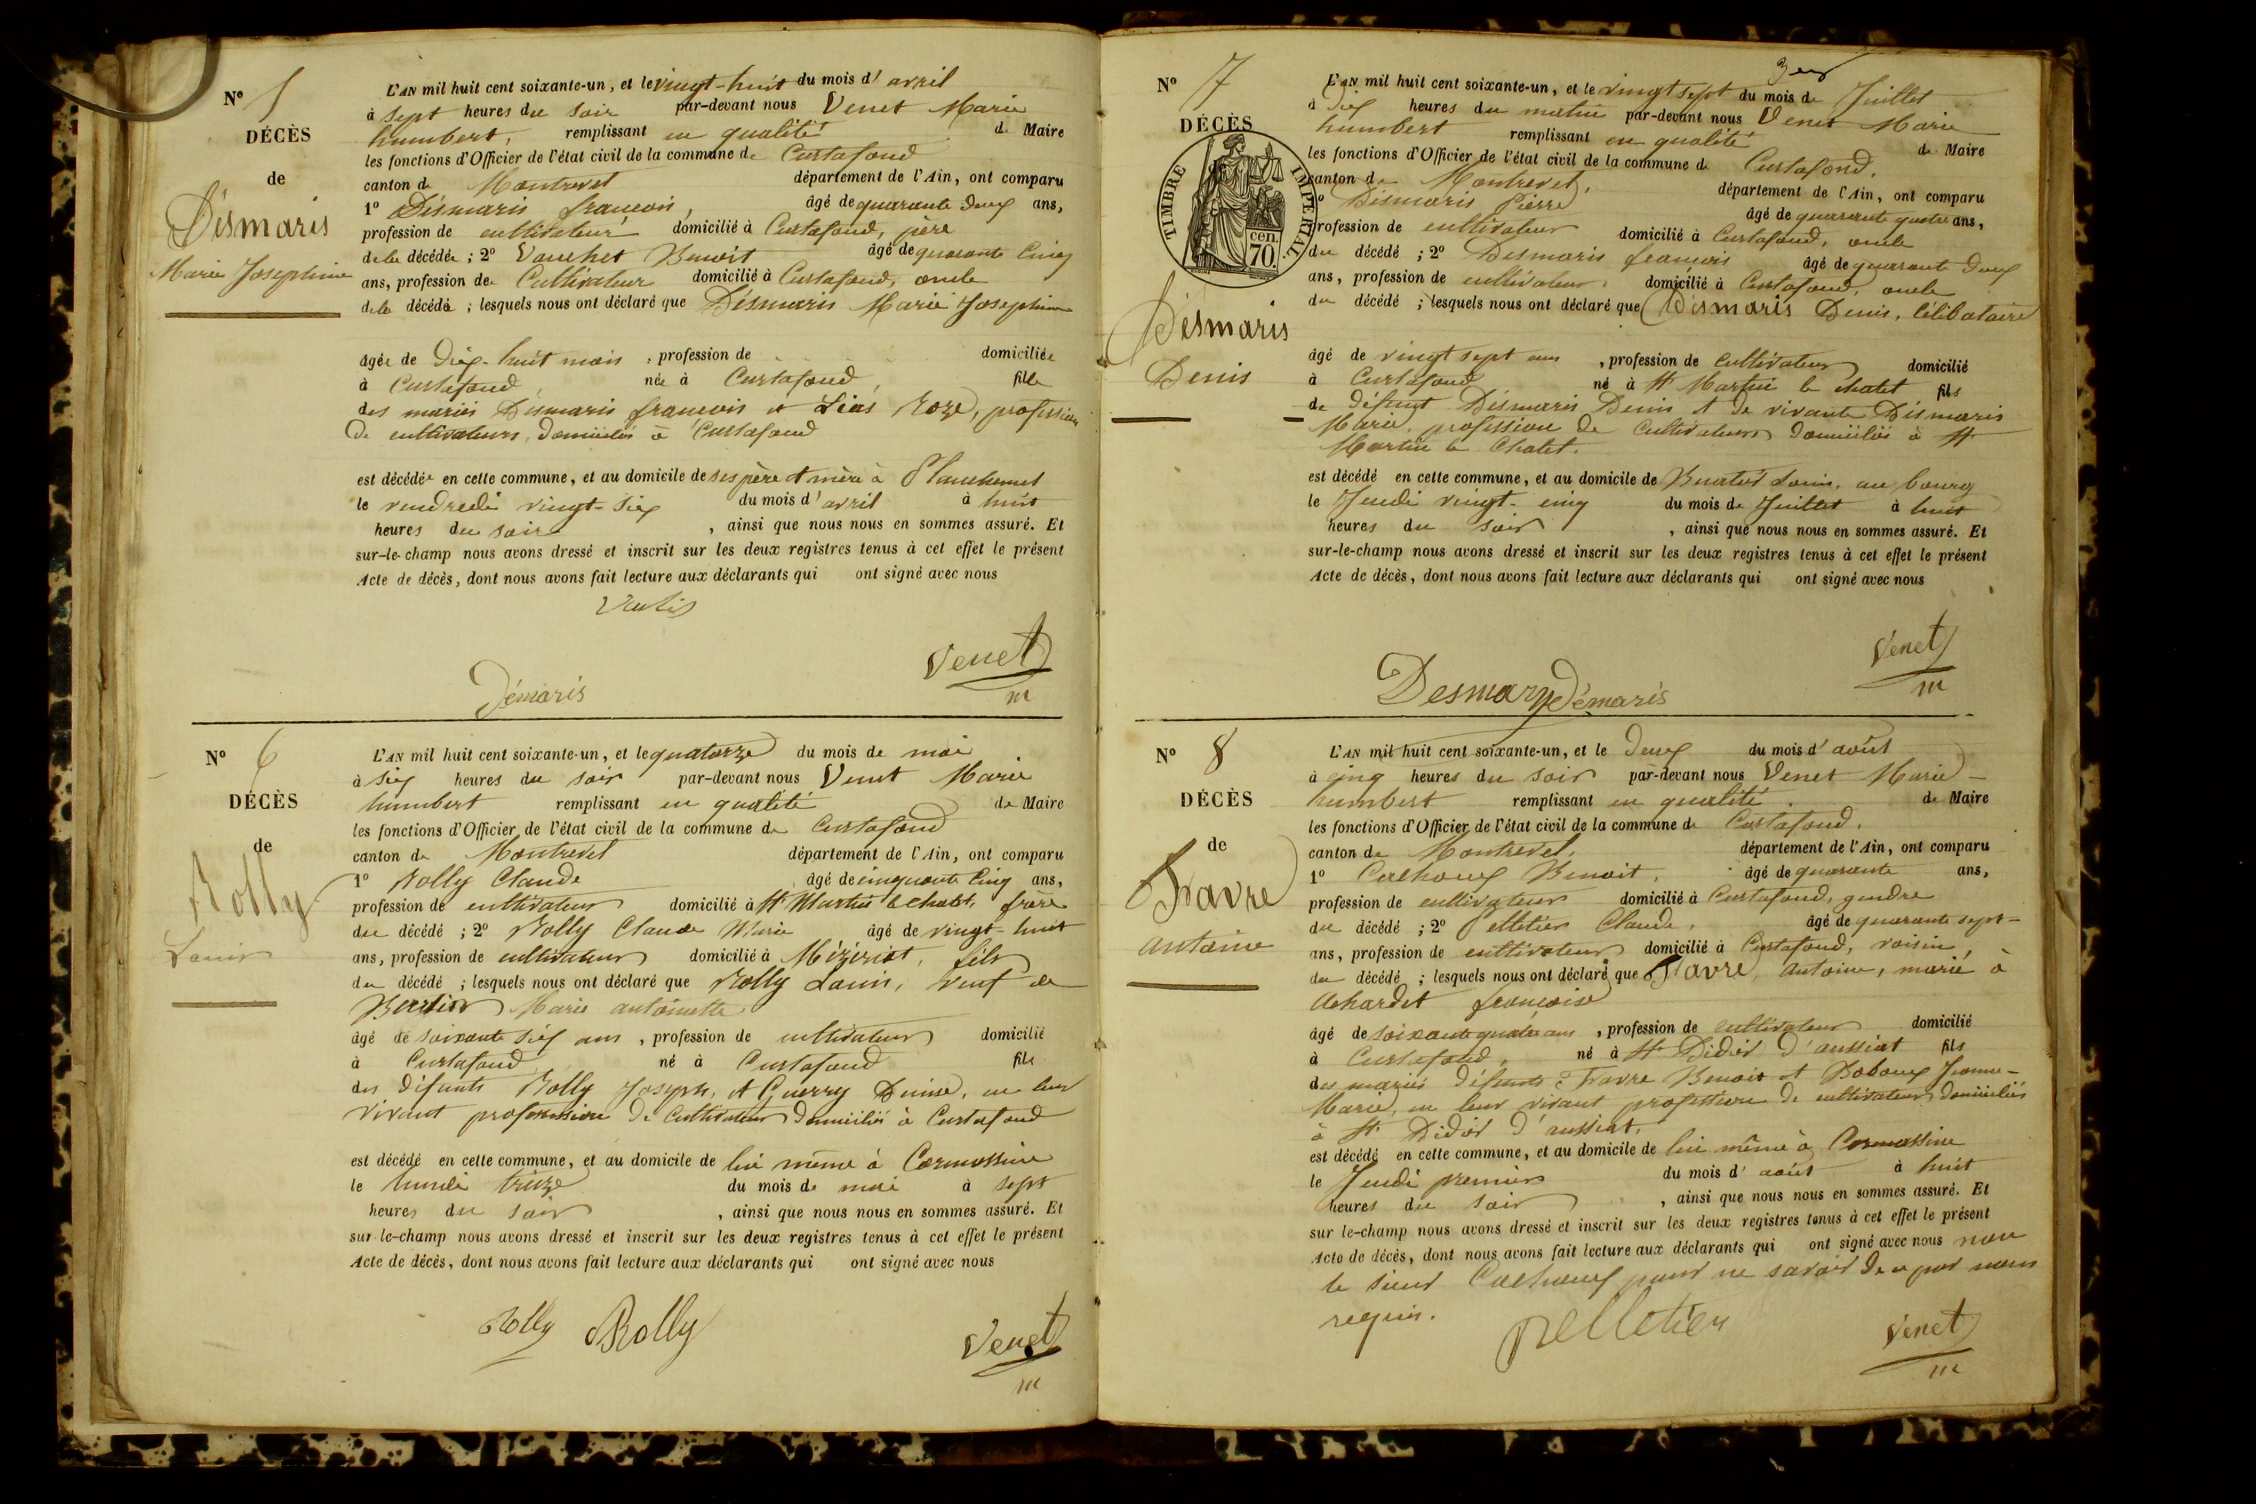 N° 5
DÉCÈS
de
Désmaris
Marie Josephine
L'AN mil huit cent soixante-un, et le vingt-huit du mois d'avril
à sept heures du soir par-devant nous Venet Marie
humbert, remplissant en qualité de Maire
les fonctions d'Officier de l'état civil de la commune de Curtafond
canton de Montrevel département de l'Ain, ont comparu
1° Désmaris francois, âgé de quarante deux ans,
profession de cultivateur domicilié à Curtafond, père
de la décédée ; 2° Vauchet Benoit âgé de quarante cinq
ans, profession de Cultivateur domicilié à Curtafond, oncle
de la décédée ; lesquels nous ont déclaré que Désmaris Marie Josephine
âgée de dix-huit mois, profession de domiciliée
à Curtafond, née à Curtafond, fille
des mariés Désmaris francois et Roze, profession
de cultivateurs, domiciliés à Curtafond
est décédée en cette commune, et au domicile de ses père et mère à
le vendredi vingt-six du mois d'avril à huit
heures du soir, ainsi que nous nous en sommes assuré. Et
sur-le-champ nous avons dressé et inscrit sur les deux registres tenus à cet effet le présent
Acte de décès, dont nous avons fait lecture aux déclarants qui ont signé avec nous
Venet
m
Démaris
N° 6
DÉCÈS
de
Rolly
Louis
L'AN mil huit cent soixante-un, et le quatorze du mois de mai
à six heures du soir par-devant nous Venet Marie
humbert remplissant en qualité de Maire
les fonctions d'Officier de l'état civil de la commune de Curtafond
canton de Montrevel département de l'Ain, ont comparu
1° Rolly Claude âgé de cinquante cinq ans,
profession de cultivateur domicilié à St Martin le chatel, frère
du décédé ; 2° Rolly Claude Marie âgé de vingt-huit
ans, profession de cultivateur domicilié à Mézériat, fils
du décédé ; lesquels nous ont déclaré que Rolly Louis, veuf de
Marie antoinette
âgé de soixante six ans, profession de cultivateur domicilié
à Curtafond né à Curtafond fils
des défunts Rolly Joseph, et Guerry Denise, en leur
vivant profession de Cultivateur domiciliés à Curtafond
est décédé en cette commune, et au domicile de lui même à Cormassine
le lundi treize du mois de mai à sept
heures du soir, ainsi que nous nous en sommes assuré. Et
sur-le-champ nous avons dressé et inscrit sur les deux registres tenus à cet effet le présent
Acte de décès, dont nous avons fait lecture aux déclarants qui ont signé avec nous
Rolly Rolly Venet
m
N° 7
DÉCÈS
TIMBRE IMPÉRIAL
cen. 70
Désmaris
Denis
L'AN mil huit cent soixante-un, et le vingt sept du mois de Juillet
à dix heures du matin par-devant nous Venet Marie
humbert remplissant en qualité de Maire
les fonctions d'Officier de l'état civil de la commune de Curtafond.
canton de Montrevel, département de l'Ain, ont comparu
Désmaris Pierre âgé de quarante quatre ans,
profession de cultivateur domicilié à Curtafond, oncle
du décédé ; 2° Desmaris francois âgé de quarante deux
ans, profession de cultivateur, domicilié à Curtafond, oncle
du décédé ; lesquels nous ont déclaré que Désmaris Denis, Célibataire
âgé de vingt sept ans, profession de cultivateur domicilié
à Curtafond né à St Martin le chatel fils
de défunt Désmaris Denis et de vivante Désmaris
Marie, profession de Cultivateurs domiciliés à St
Martin le Chatel.
est décédé en cette commune, et au domicile de Louis, au bourg
le Jeudi vingt-cinq du mois de Juillet à huit
heures du soir, ainsi que nous nous en sommes assuré. Et
sur-le-champ nous avons dressé et inscrit sur les deux registres tenus à cet effet le présent
Acte de décès, dont nous avons fait lecture aux déclarants qui ont signé avec nous
Venet
m
Desmary Démaris
N° 8
DÉCÈS
de
Favre
antoine
L'AN mil huit cent soixante-un, et le deux du mois d'août
à cinq heures du soir par-devant nous Venet Marie
humbert remplissant en qualité de Maire
les fonctions d'Officier de l'état civil de la commune de Curtafond.
canton de Montrevel, département de l'Ain, ont comparu
1° Cathoux Benoit, âgé de quarante ans,
profession de cultivateur domicilié à Curtafond, gendre
du décédé ; 2° Pelletier Claude, âgé de quarante sept
ans, profession de cultivateur domicilié à Curtafond, voisin,
du décédé ; lesquels nous ont déclaré que Favre, antoine, marié à
francoise
âgé de soixante quatre ans, profession de cultivateur domicilié
à Curtafond, né à St Didier d'aussiat fils
des mariés défunts Favre Benoit et Jeanne-
Marie, en leur vivant profession de cultivateur domiciliés
à St Didier d'aussiat.
est décédé en cette commune, et au domicile de lui même à Cormassine
le Jeudi premier du mois d'août à huit
heures du soir, ainsi que nous nous en sommes assuré. Et
sur le-champ nous avons dressé et inscrit sur les deux registres tenus à cet effet le présent
Acte de décès, dont nous avons fait lecture aux déclarants qui ont signé avec nous non
le sieur Cathoux pour ne savoir de ce par nous
requis.
pelletier Venet
m